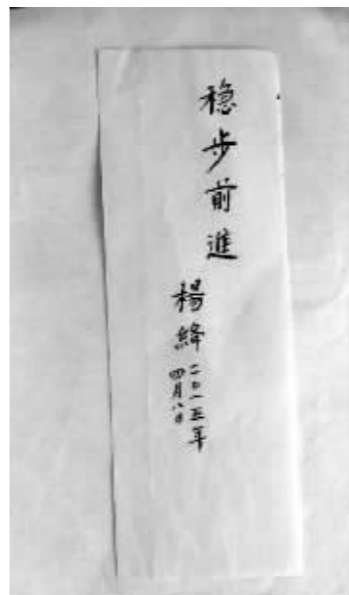 稳步前進
楊絳 二〇一五年
四月八日